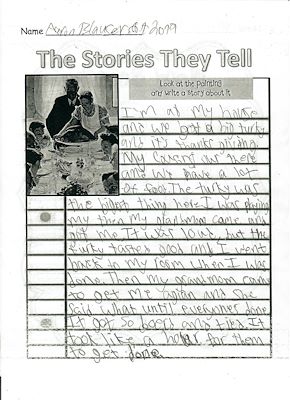 Name
2019
The Stories They Tell
Look at the painting
and write a story about it
I'm at my house
and we got a big turky
and it's thanks giving.
My cousins our there
and we have a lot
of foof The turky was
the bigest thing here I was playing
my then my grandmome came and
got me It was loud, but the
turky tasted good and I went
back in my room when I was
done. Then my grandmom came
to get me again and she
said what until everyone done
It got so bord and tierd It
took like a hour for them
to get done.